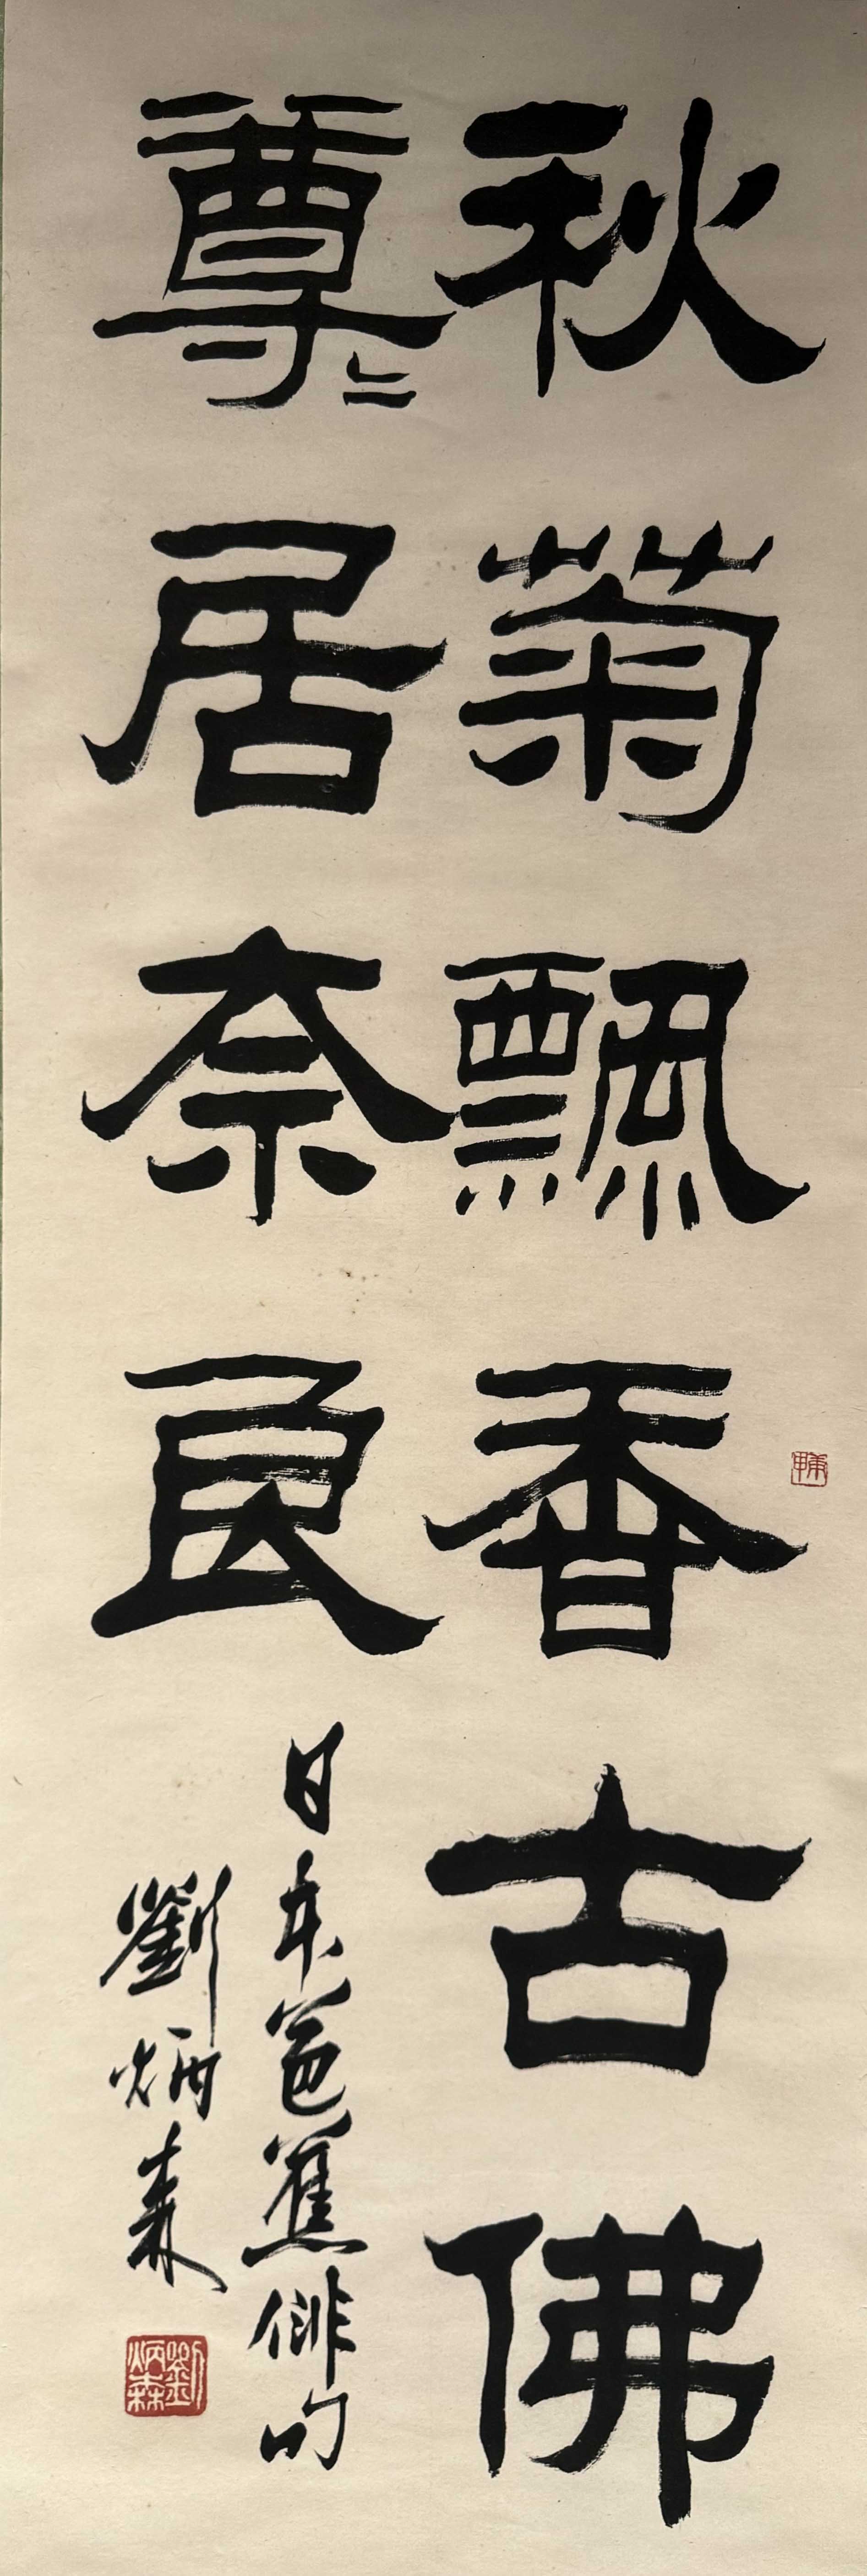 秋菊飄香古佛
尊〻居奈良
日本芭蕉俳句
劉炳森
劉炳森